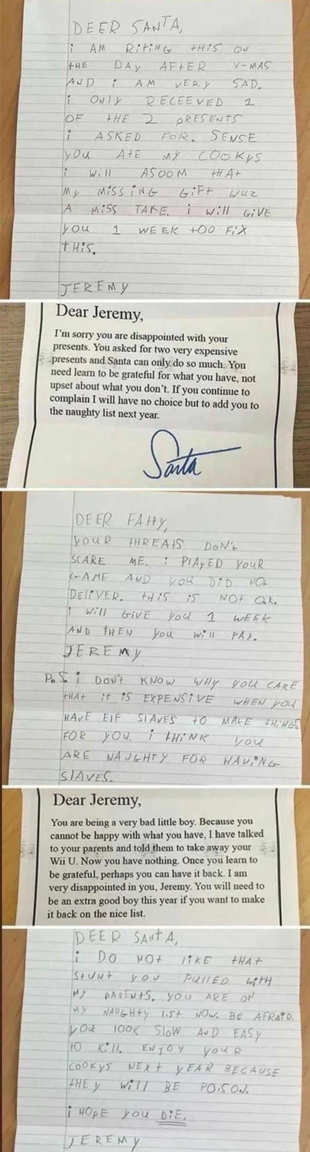 DEER SANTA,
i AM RiTiNG tHiS ON
tHE DAY AFTER X-MAS
AND i AM VERY SAD.
i ONLY RECEEVED 1
OF tHE 2 PRESENTS
i ASKED FOR. SENSE
YOU ATE MY COOKYS
i Will ASOOM tHAt
MY MISSING GiFt WUZ
A MISS TAKE. i Will GiVE
YOU 1 WEEK tOO FiX
tHiS.
JEREMY
Dear Jeremy,
I'm sorry you are disappointed with your
presents. You asked for two very expensive
presents and Santa can only do so much. You
need learn to be grateful for what you have, not
upset about what you don't. If you continue to
complain I will have no choice but to add you to
the naughty list next year.
Santa
DEER FAttY,
YOUR tHREAtS DON't
SCARE ME. i PlAYED YOUR
GAME AND YOU DiD NOt
DEliVER. tHiS iS NOt OK.
i Will GiVE YOU 1 WEEK
AND tHEN YOU Will PAY.
JEREMY
P.S. i DON't KNOW WHY YOU CARE
tHAt it iS EXPENSiVE WHEN YOU
HAVE ElF SlAVES tO MAKE tHiNGS
FOR YOU. i tHiNK YOU
ARE NAUGHtY FOR HAViNG
SlAVES.
Dear Jeremy,
You are being a very bad little boy. Because you
cannot be happy with what you have, I have talked
to your parents and told them to take away your
Wii U. Now you have nothing. Once you learn to
be grateful, perhaps you can have it back. I am
very disappointed in you, Jeremy. You will need to
be an extra good boy this year if you want to make
it back on the nice list.
DEER SANtA,
i DO NOt liKE tHAt
StUNt YOU PUllED WitH
MY PARENtS. YOU ARE ON
MY NAUGHtY liSt NOW. BE AFRAiD.
YOU lOOK SlOW AND EASY
tO Kill. ENJOY YOUR
COOKYS NEXt YEAR BECAUSE
tHEY Will BE POiSON.
i HOPE YOU DiE.
JEREMY